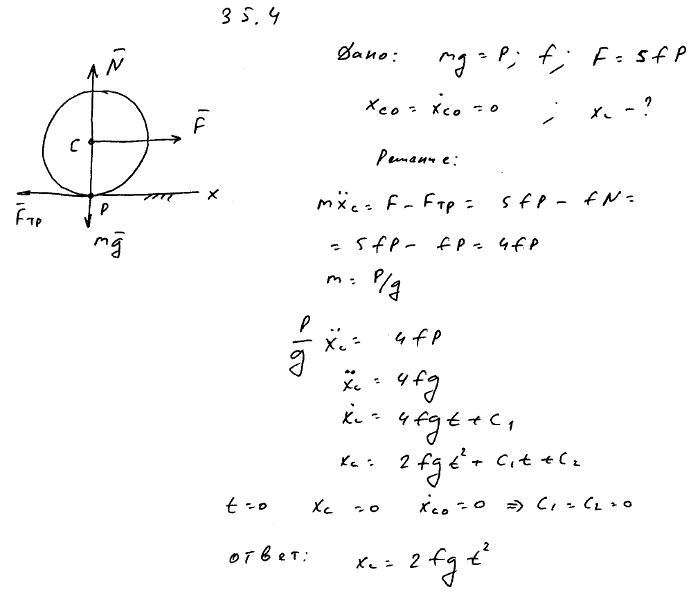 35.4
N̄
Дано: mg = P; f; F = 5fP
F̄
C
x_{C0} = ẋ_{C0} = 0 ; x_C - ?
Решение:
F̄_{тр} P x
mẍ_C = F - F_{тр} = 5fP - fN =
mḡ
= 5fP - fP = 4fP
m = P/g
P/g ẍ_C = 4fP
ẍ_C = 4fg
ẋ_C = 4fgt + C₁
x_C = 2fgt² + C₁t + C₂
t=0 x_C = 0 ẋ_{C0} = 0 ⇒ C₁ = C₂ = 0
ответ: x_C = 2fgt²